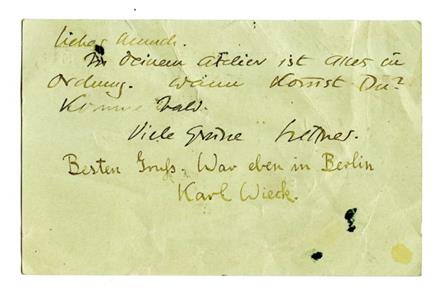 Lieber Munch.
In Deinem Atelier ist Alles in
Ordnung. Wann kommst Du?
Komme bald.
Viele Grüße Hettner.
Besten Gruß. War eben in Berlin
Karl Wieck.